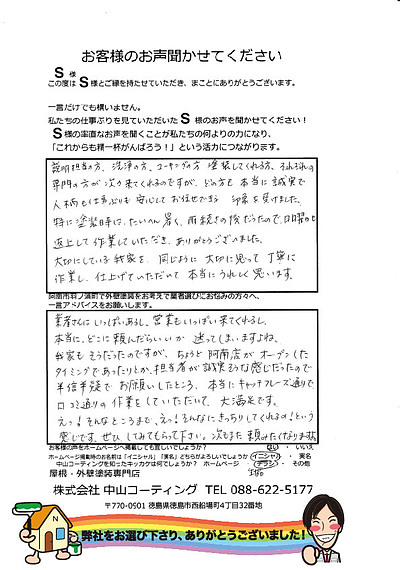 お客様のお声聞かせてください
S 様
この度は S 様とご縁を持たせていただき、まことにありがとうございます。
一言だけでも構いません。
私たちの仕事ぶりを見ていただいた S 様のお声を聞かせてください！
S 様の率直なお声を聞くことが私たちの何よりの力になり、
「これからも精一杯がんばろう！」という活力につながります。
説明担当の方、洗浄の方、コーキングの方 塗装してくれる方、それぞれの
専門の方が次々来てくれるのですが、どの方も本当に誠実で
人柄も仕事ぶりも安心してお任せできる 印象を受けました。
特に塗装時は、たいへん暑く、雨続きの後だったので、日曜日も
返上して作業していただき、ありがとうございました。
大切にしている我家を、同じように大切に思って丁寧に
作業し、仕上げていただいて 本当にうれしく思います。
阿南市才ノ浦町で外壁塗装をお考えで業者選びにお悩みの方々へ、
一言アドバイスをお願いします。
業者さんはいっぱいあるし、営業もいっぱい来てくれるし、
本当に、どこに頼んだらいいか 迷ってしまいますよね。
我家もそうだったのですが、ちょうど阿南店がオープンした
タイミングであったりとか、担当者が誠実そうな感じだったので
半信半疑でお願いしたところ、本当にキャッチフレーズ通りで
口コミ通りの作業をしていただいて、大満足です。
えっ！そんなところまで、えっ！そんなにきっちりしてくれるの！という
感じです。ぜひ、してみてもらって下さい。次もまた頼みたくなりますよ
お客様の声をホームページへ掲載しても宜しいでしょうか？ はい ・ いいえ
ホームページ掲載時のお名前は「イニシャル」「実名」どちらがよろしいでしょうか イニシャル ・ 実名
中山コーティングを知ったキッカケは何でしょうか？ ホームページ ・ チラシ ・ その他
屋根・外壁塗装専門店
株式会社 中山コーティング TEL 088-622-5177
〒770-0901 徳島県徳島市西船場町4丁目32番地
弊社をお選び下さり、ありがとうございました！